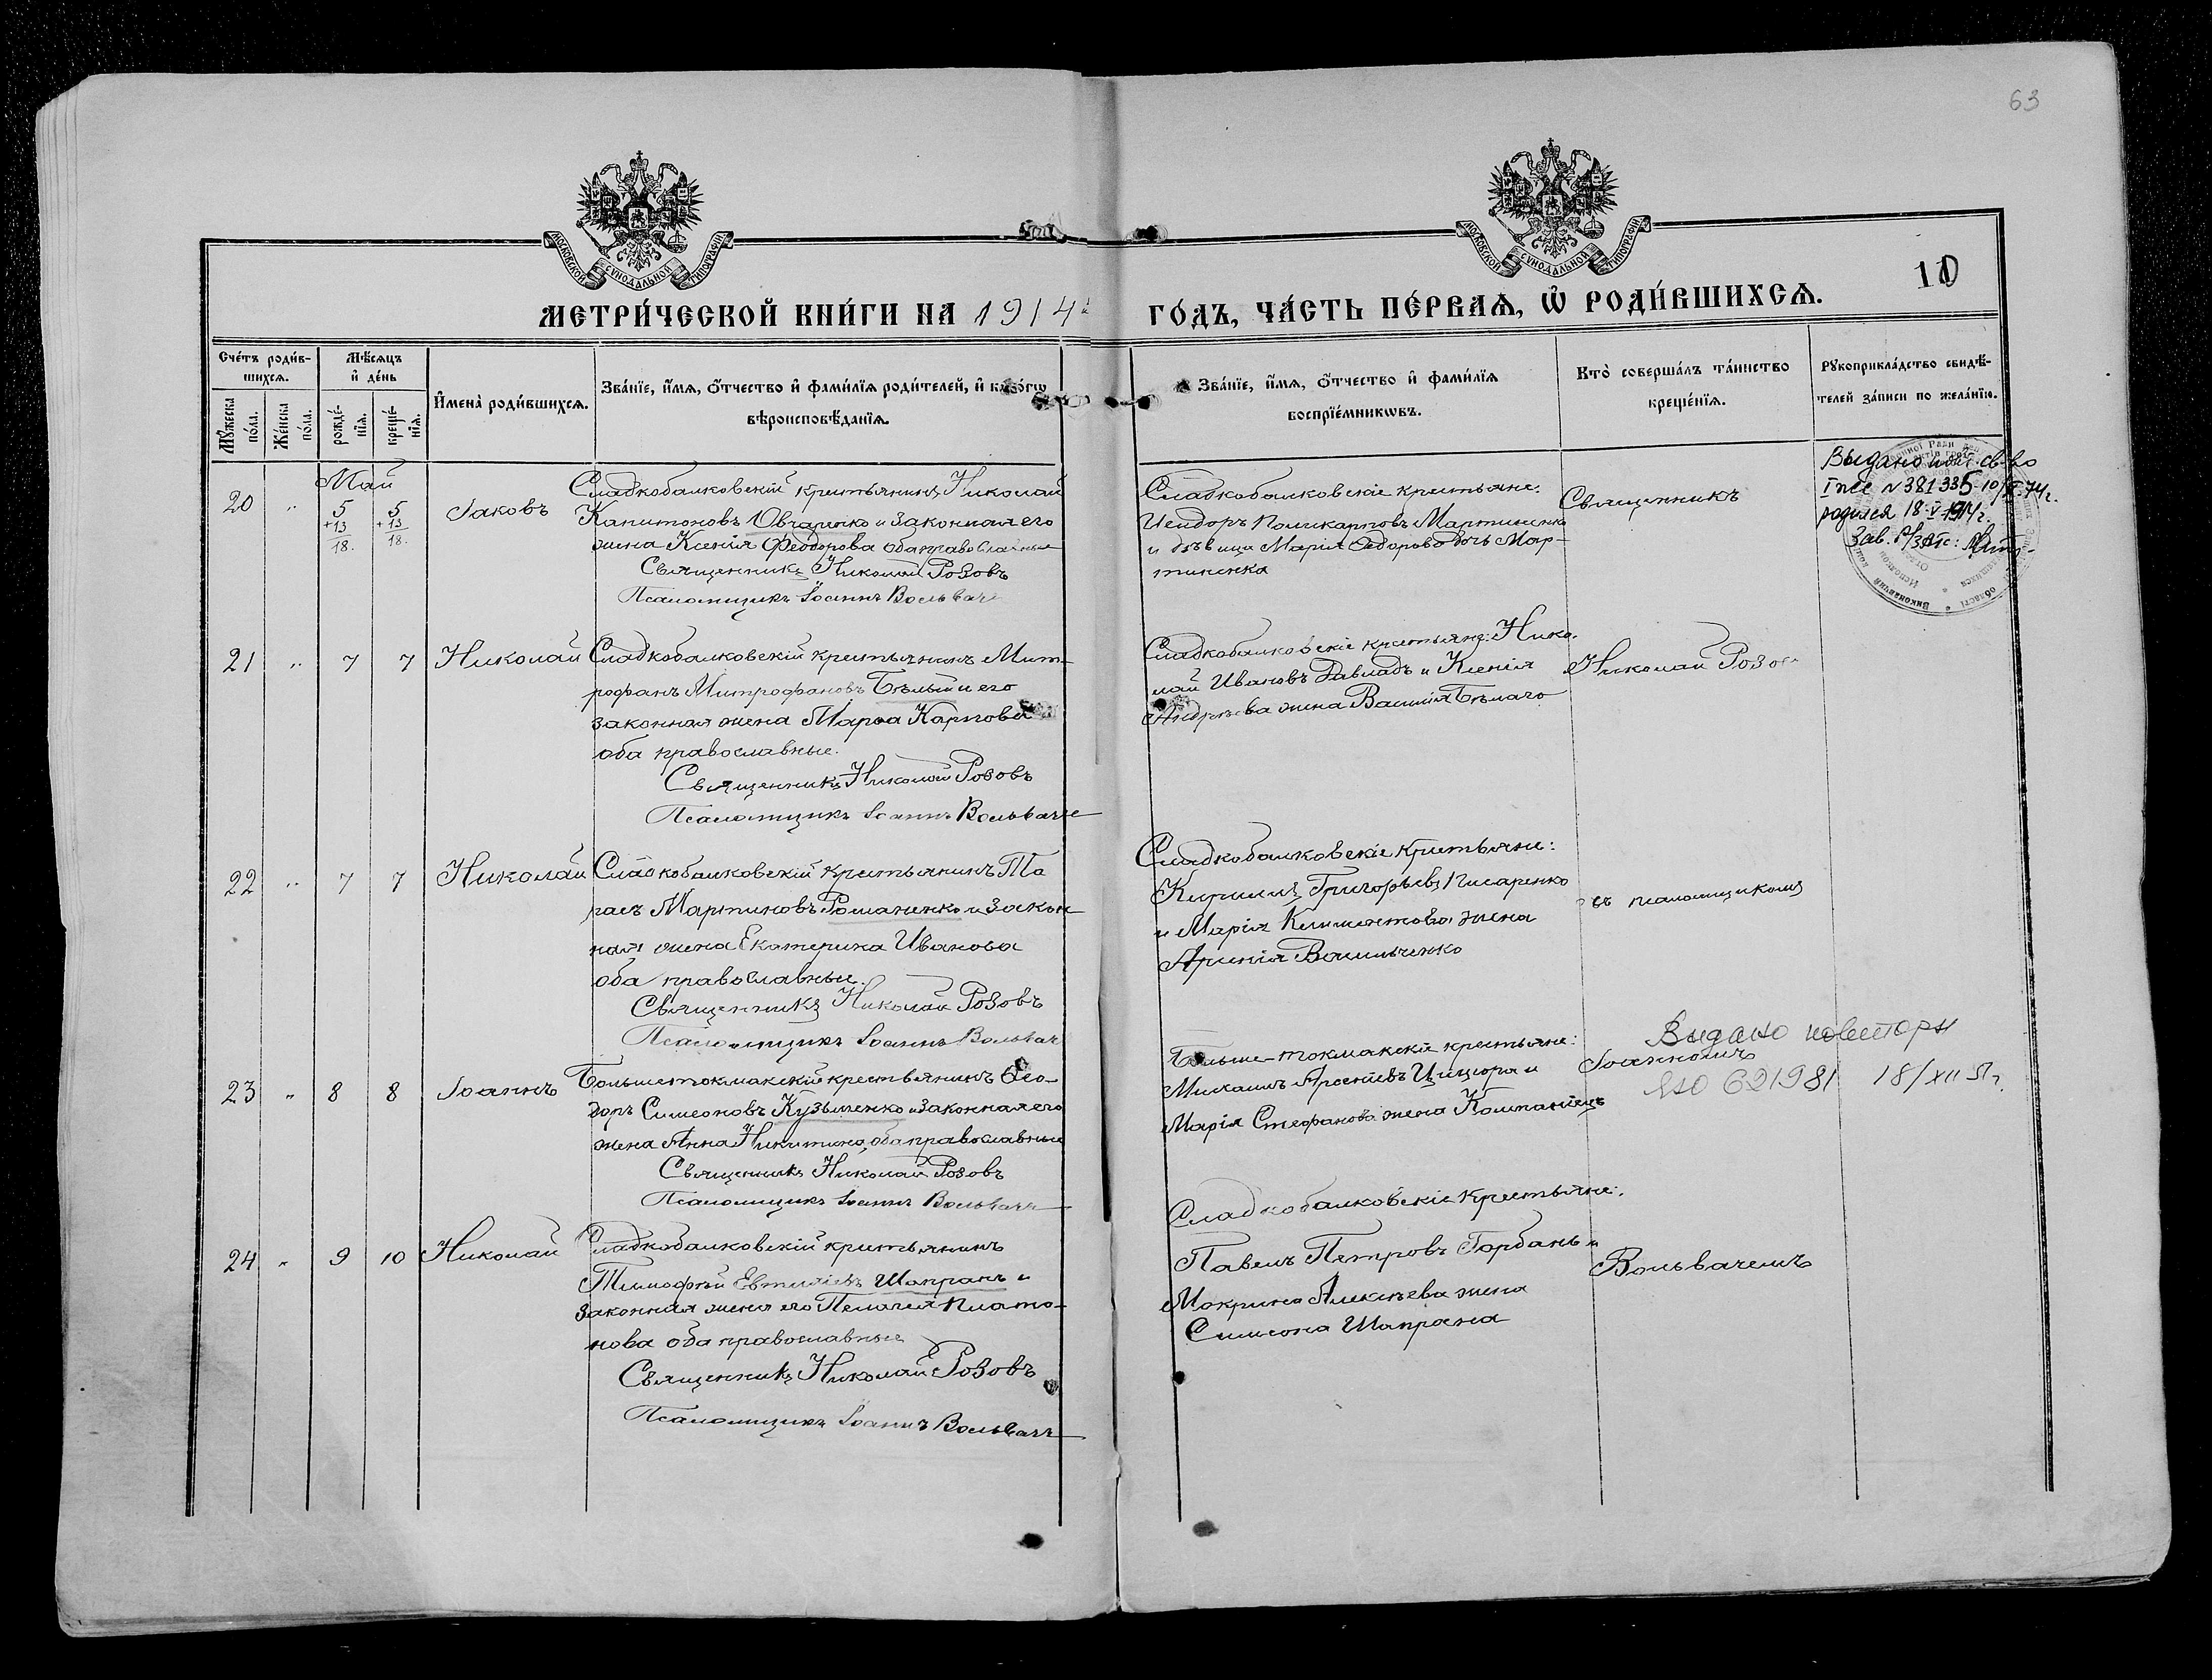 63
МОСКОВСКОЙ СѴНОДАЛЬНОЙ ТИПОГРАФІИ
МОСКОВСКОЙ СѴНОДАЛЬНОЙ ТИПОГРАФІИ
10
МЕТРИ́ЧЕСКОЙ КНИ́ГИ НА 1914 ГО́ДЪ, ЧА́СТЬ ПЕ́РВАѦ, Ѡ҆ РОДИ́ВШИХСѦ.
Сче́тъ роди́в-
шихсѧ.
Мѣ́сѧцъ
и҆ де́нь
Мꙋ́жеска
по́ла.
Же́нска
по́ла.
рожде́-
нїѧ.
креще́-
нїѧ.
И҆мена̀ роди́вшихсѧ.
Зва́нїе, и҆́мѧ, ѻ҆́тчество и҆ фами́лїѧ роди́телей, и҆ како́гѡ
вѣроисповѣ́данїѧ.
Зва́нїе, и҆́мѧ, ѻ҆́тчество и҆ фами́лїѧ
воспрїе́мникѡвъ.
Кто̀ соверша́лъ та́инство
креще́нїѧ.
Рꙋкоприкла́дство свидѣ́-
телей за́писи по жела́нїю.
Май
20 " 5 5 Іаковъ
+13 +13
18. 18.
Сладкобалковскій крестьянинъ Николай
Капитоновъ Овчаренко и законная его
жена Ксенія Феодорова оба православные
Священникъ Николай Розовъ
Псаломщикъ Іоаннъ Вольвачъ
Сладкобалковскіе крестьяне:
Исидоръ Поликарповъ Мартиненко
и дѣвица Марія Ѳедорова дочь Мар-
тиненка
Священникъ
Выдано повт. св-во
N 381335 10/ 74г.
родился 18-V-1914г.
Зав.
21 " 7 7 Николай
Сладкобалковскій крестьянинъ Мит-
рофанъ Митрофановъ Бѣлый и его
законная жена Марѳа Карпова
оба православные.
Священникъ Николай Розовъ
Псаломщикъ Іоаннъ Вольвачъ
Сладкобалковскіе крестьяне: Нико-
лай Ивановъ и Ксенія
Андреева жена Василія Бѣлаго
Николай Розовъ
22 " 7 7 Николай
Сладкобалковскій крестьянинъ Та
расъ Мартиновъ Романенко и закон
ная жена Екатерина Иванова
оба православные.
Священникъ Николай Розовъ
Псаломщикъ Іоаннъ Вольвачъ
Сладкобалковскіе крестьяне:
Кириллъ Григорьевъ Писаренко
и Марія Климентова жена
Арсенія Васильченко
съ псаломщикомъ
23 " 8 8 Іоаннъ
Большетокмакскій крестьянинъ Ѳео-
доръ Симеоновъ Кузьменко и законная его
жена Анна Никитина, оба православные
Священникъ Николай Розовъ
Псаломщикъ Іоаннъ Вольвачъ
Больше-токмакскіе крестьяне:
Михаилъ Арсеніевъ Цицюра и
Марія Стефанова жена Компаніецъ
Іоанномъ
Выдано повторн
621981 18/XII 51г.
24 " 9 10 Николай
Сладкобалковскій крестьянинъ
Тимофей Евтихіевъ Шапранъ и
законная жена его Пелагея Плато-
нова оба православные
Священникъ Николай Розовъ
Псаломщикъ Іоаннъ Вольвачъ
Сладкобалковскіе крестьяне:
Павелъ Петровъ Горбань и
Мокрина Алексѣева жена
Симеона Шапрана
Вольвачемъ